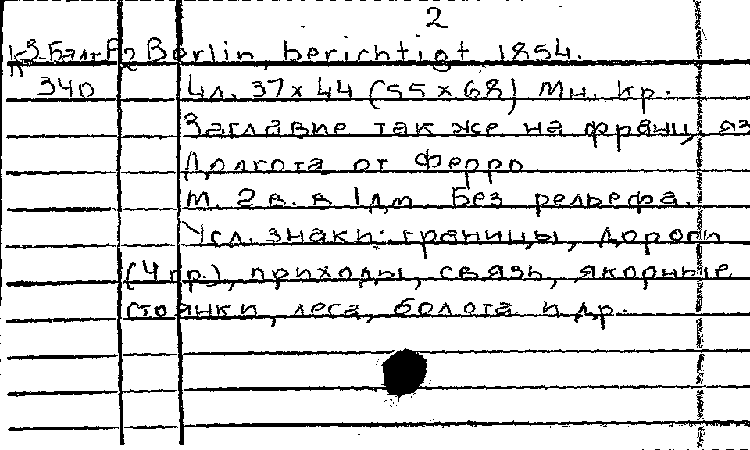 2
К 3 Балт Р2 Berlin, berichtigt 1854.
340 4 л. 37 x 44 (55 x 68) Мн. кр.
Заглавие так же на франц. яз
Долгота от Ферро
М. 2 в. в 1 дм. Без рельефа.
Усл. знаки: границы, дороги
(4 гр.), приходы, связь, якорные
стоянки, леса, болота и др.